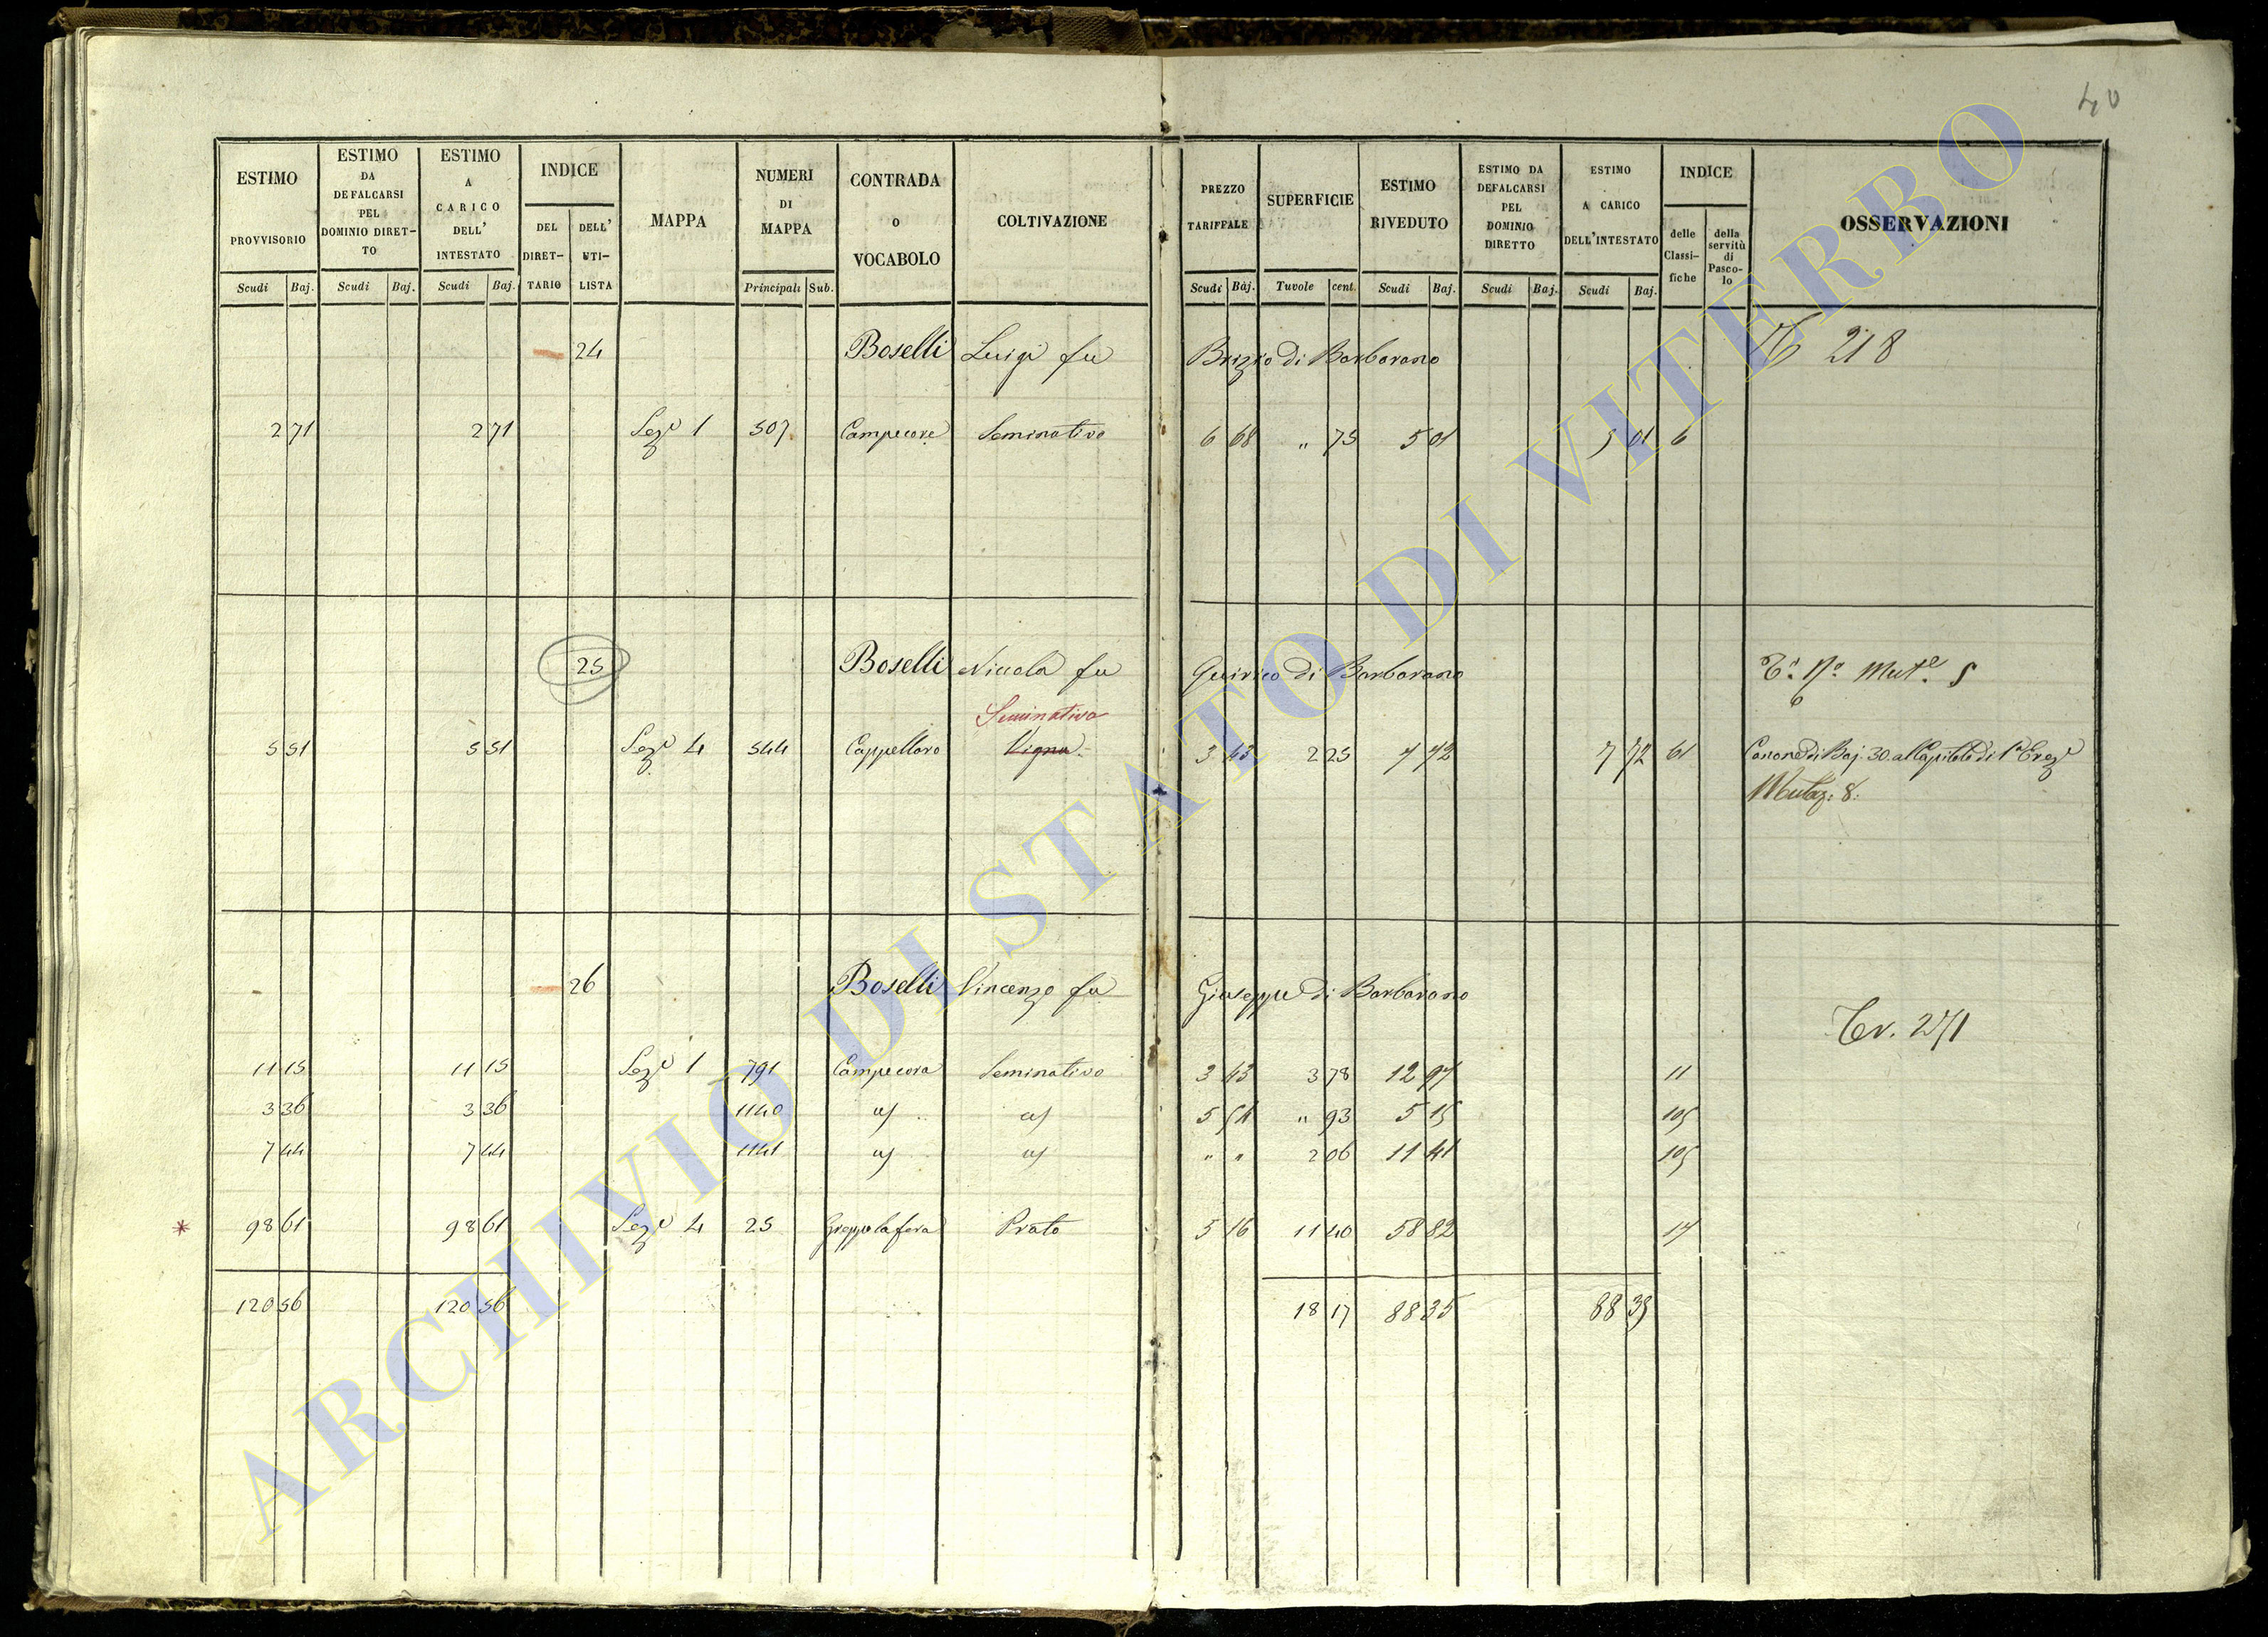 40
ESTIMO PROVVISORIO Scudi Baj.
ESTIMO DA DEFALCARSI PEL DOMINIO DIRET-TO Scudi Baj.
ESTIMO A CARICO DELL' INTESTATO Scudi Baj.
INDICE DEL DIRET-TARIO DELL' UTI-LISTA
MAPPA
NUMERI DI MAPPA Principali Sub.
CONTRADA O VOCABOLO
COLTIVAZIONE
PREZZO TARIFFALE Scudi Baj.
SUPERFICIE Tavole cent.
ESTIMO RIVEDUTO Scudi Baj.
ESTIMO DA DEFALCARSI PEL DOMINIO DIRETTO Scudi Baj.
ESTIMO A CARICO DELL'INTESTATO Scudi Baj.
INDICE delle Classi-fiche della servitù di Pasco-lo
OSSERVAZIONI
24 Boselli Luigi fu Brizio di Barbarano 218
2 71 2 71 Seze 1 507 Campecore Seminativo 6 68 " 75 5 01 5 01 6
25 Boselli Niccola fu Quirico di Barbarano Mute. 5
Seminativo
5 51 5 51 Seze 4 544 Cappellaro Vigna 3 43 2 25 7 72 7 72 61 Canone di Baj. 30. al Capitolo di
Mutaz: 8.
26 Boselli Vincenzo fu Giuseppe di Barbarano
Tr. 271
11 15 11 15 Seze 1 791 Campecora Seminativo 3 43 3 78 12 97 11
3 36 3 36 1140 5 54 " 93 5 15 105
7 44 7 44 1141 " " 2 06 11 41 105
* 98 61 98 61 Seze 4 25 Greppolafera Prato 5 16 11 40 58 82 17
120 56 120 56 18 17 88 35 88 35
ARCHIVIO DI STATO DI VITERBO